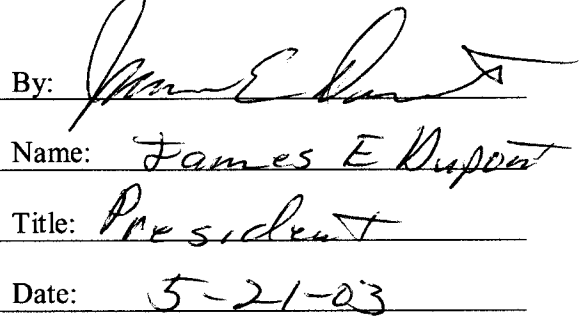 By: James E Dupont
Name: James E Dupont
Title: President
Date: 5-21-03